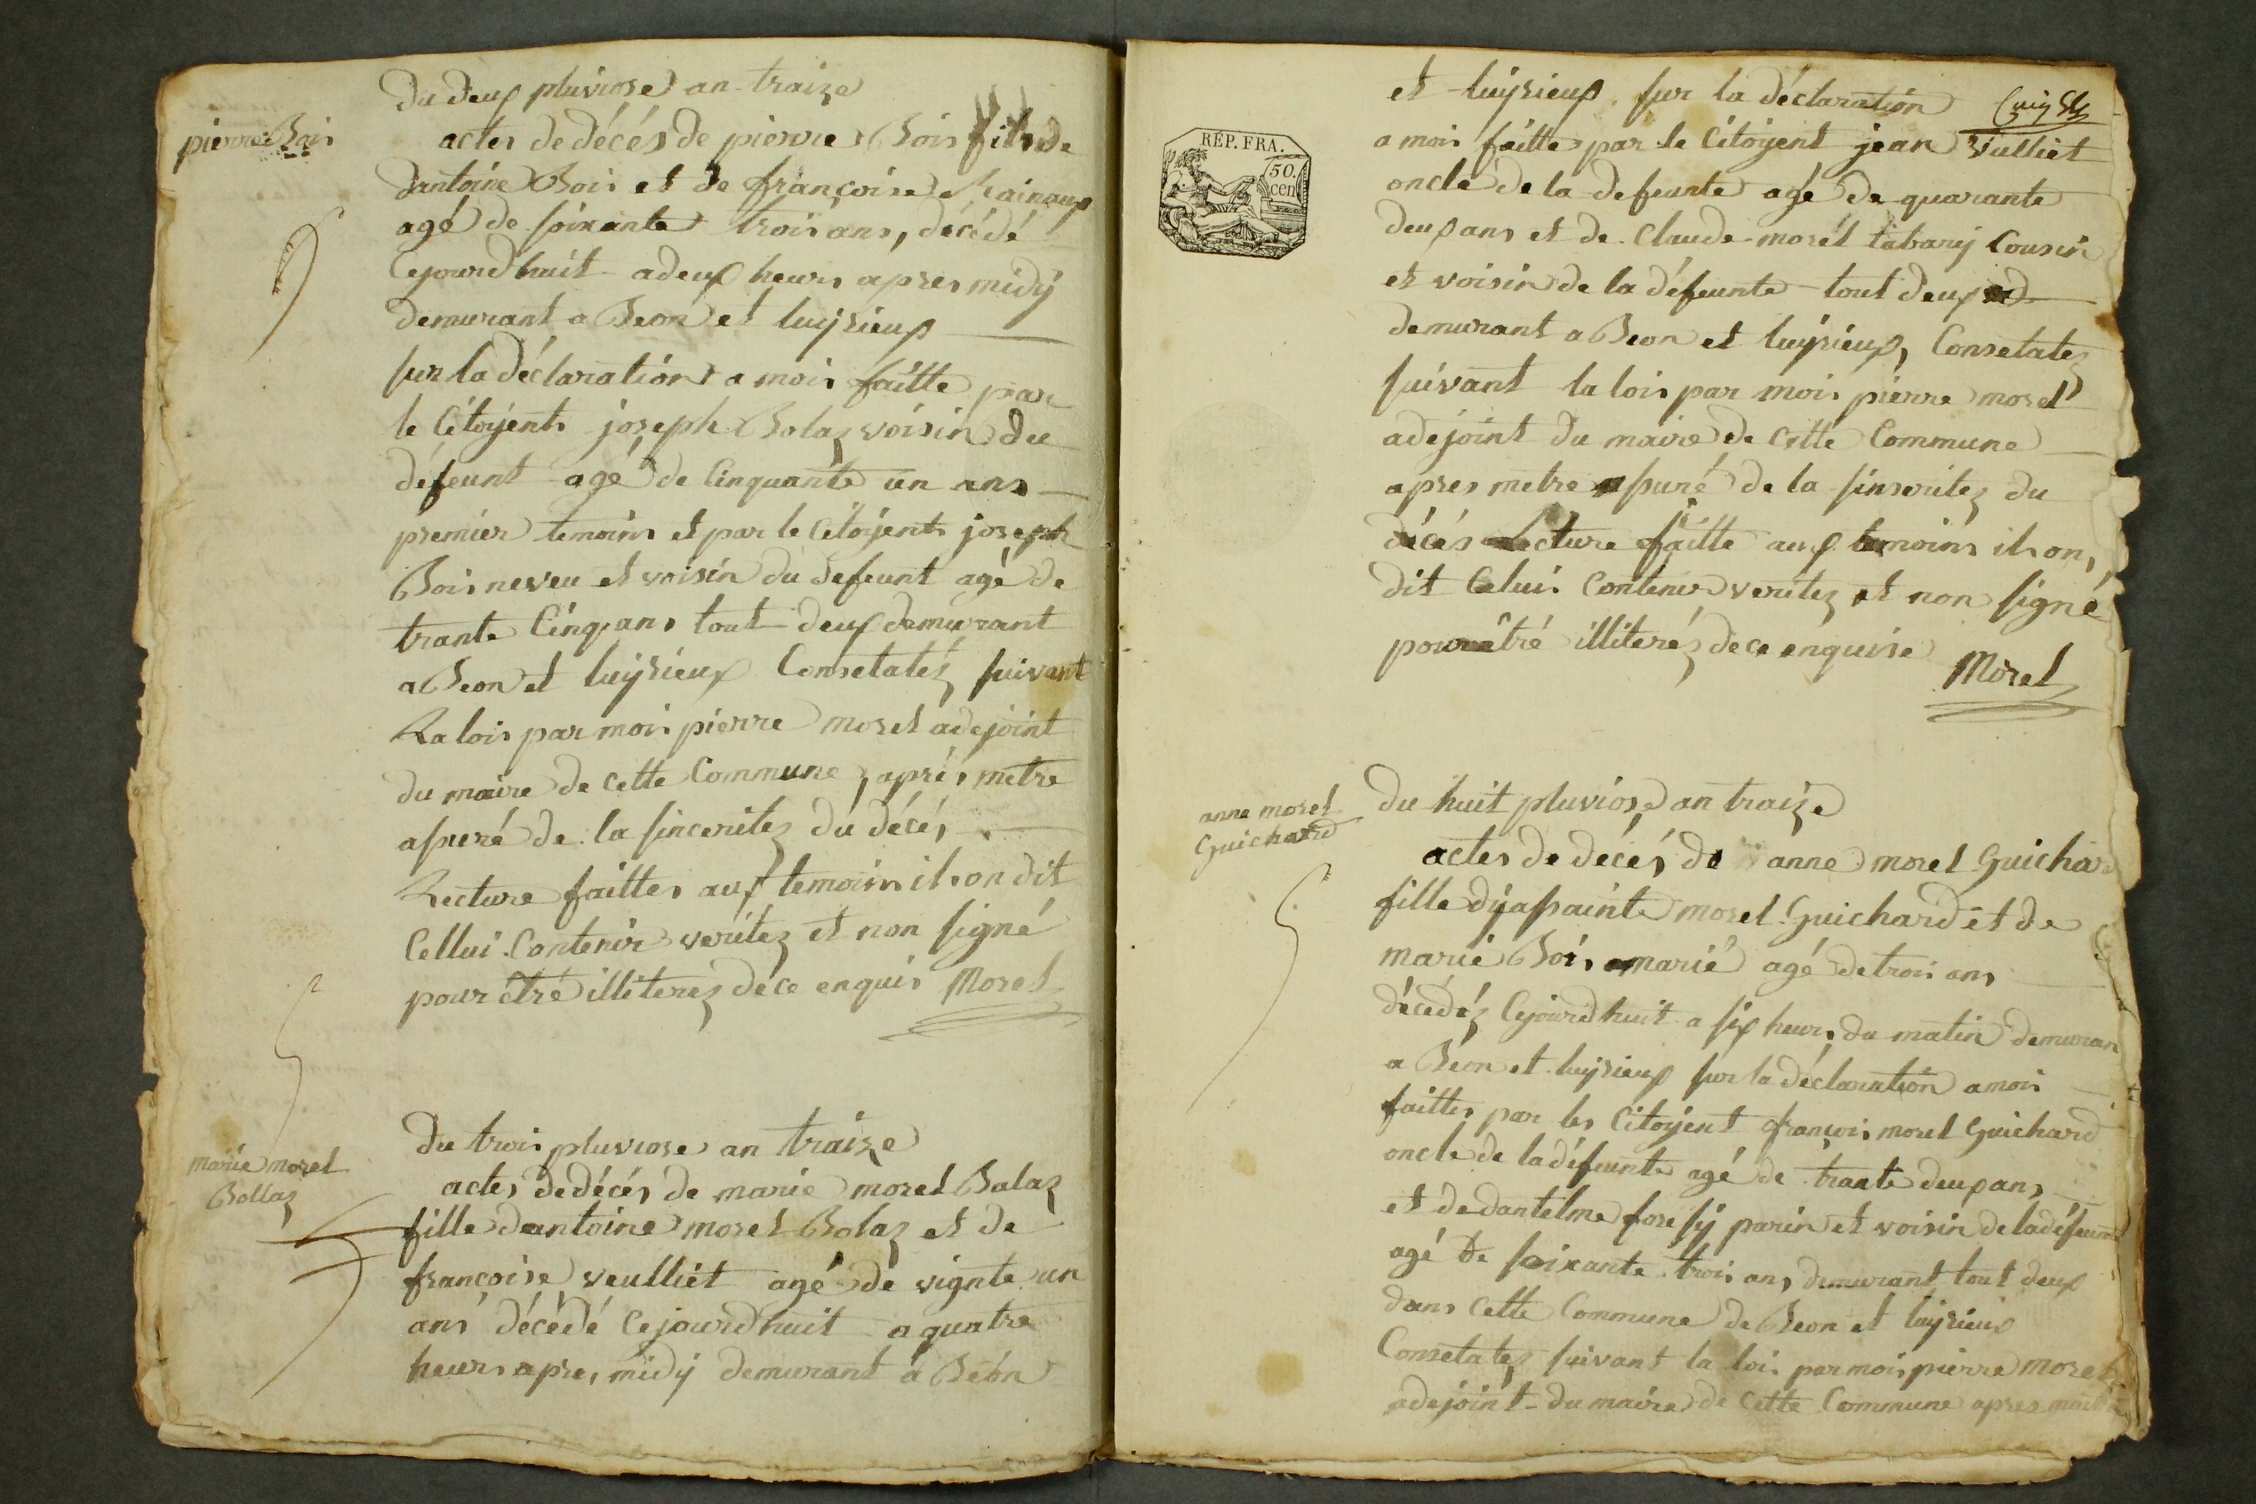 du deux pluviose an traize
pierre Bois
actes de décés de pierre Bois fils de
dantoine Bois et de françoise
agé de soixante trois ans, décédé
Cejourdhuit a deux heurs apres midÿ
demurant a Beon et luÿsieux
sur la déclaration a mois faitte par
le Citoÿents joseph Bolaz voisin du
défeunt agé de Cinquante un ans
premier temoins et par le Citoÿents joseph
Bois neveu et voisin du defeunt agé de
trante Cinq ans tout deux demurant
a Beon et luÿsieux Consetatéz suivant
La lois par mois pierre morel adejoint
du maire de cette Commune, aprés metre
assuré de la sinceritez du décés
Lecture faittes aux temoins ils on dit
Cellui Contenir veritez et non signé
pour étré illiterez de ce enquis Morel
du trois pluviose an traize
marie morel
Bollaz
actes de décés de marie morel Balaz
fille dantoine morel Bolaz et de
françoise veulliet agé de vignte un
ans décédé Cejourdhuit a quatre
heurs apres midÿ demurant a Béon
et luÿsieux sur la déclaration
RÉP. FRA.
50.
cen
a mois faitte par le Citoÿent jean Vulliet
oncle de la defeunte agé de quarante
deux ans et de Claude morél tabarÿ Cousin
et voisin de la défeunte tout deux
demurant a Beon et luÿsieux, Consetatez
suivant la lois par mois pierre morel
adejoint du maire de cette Commune
apres metre assuré de la sinseritez du
décés Lecture faitte aux temoins ils on,
dit Celui Contenir veritez et non signé
pour étré illiteréz de ce enquise
Morel
du huit pluviose an traize
anne morel
Guichard
actes de decés de anne morel Guichard
fille dÿassainte morel Guichard et de
marie Bois marié agé de trois ans
décédéz Cejourdhuit a six heurs du matin demuran
a Béon et luÿsieux sur la déclaration a mois
faittes par les Citoÿent françois morel Guichard
oncle de la défeunte agé de trante deux ans
et de dantelme foressÿ parin et voisin de la défeunte
agé de soixante trois ans demurant tout deux
dans Cette Commune de Beon et luÿsieux
Consetatez suivant la lois par mois pierre morel
adejoint du maire de Cette Commune apres